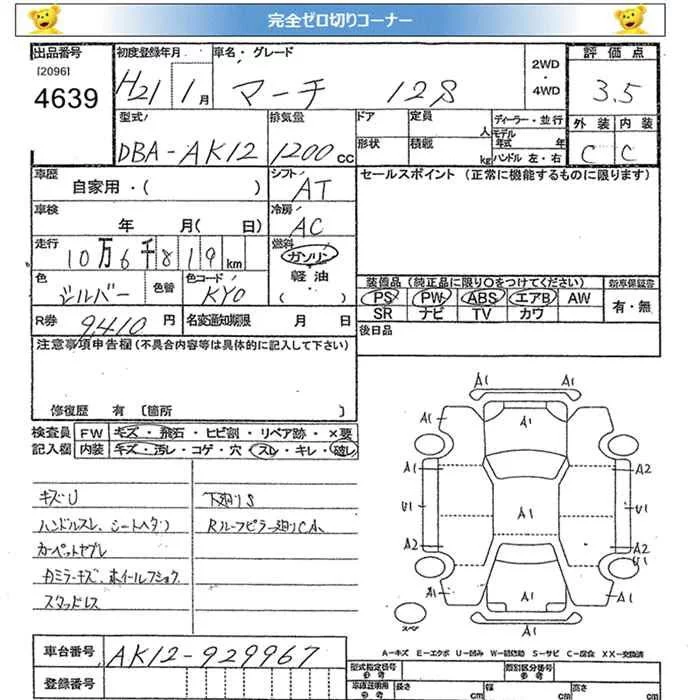 完全ゼロ切りコーナー
出品番号
[2096]
4639
初度登録年月
H21 1月
車名・グレード
マーチ 12S
2WD・4WD
評価点
3.5
型式
DBA-AK12
排気量
1200cc
ドア
形状
定員 人
積載 kg
ディーラー・並行
モデル年式 年
ハンドル 左・右
外装 内装
C C
車歴
自家用・( )
シフト
AT
セールスポイント (正常に機能するものに限ります)
車検
年 月( 日)
冷房
AC
走行
10万6千819km
燃料
ガソリン
軽油
( )
色
シルバー
色替
色コード
KY0
装備品(純正品に限り〇をつけてください)
PS PW ABS エアB AW
SR ナビ TV カワ
新車保証書
有・無
R券 9410円
名変通知期限 月 日
後日品
注意事項申告欄(不具合内容等は具体的に記入して下さい)
修復歴 有 [箇所 ]
検査員記入欄
FW キズ・飛石・ヒビ割・リペア跡・×要
内装 キズ・汚レ・コゲ・穴 スレ・キレ・破レ
キズU
ハンドルスレ、シートヘタリ
カーペットヤブレ
カミラーキズ、ホイールフショク
スタッドレス
下廻りS
Rルーフピラー廻りCA、
A1 A1
A1 A1 A1
A1 A2
U1 A1 U1
A2 A2
A1 A1 A1
A1
スペア
A-キズ E-エクボ U-凹み W-補修跡 S-サビ C-腐食 XX-交換済
車台番号 AK12-929967
登録番号
型式指定番号
参考
類別区分番号
参考
車庫証明用
参考
長さ cm
幅 cm
高さ cm